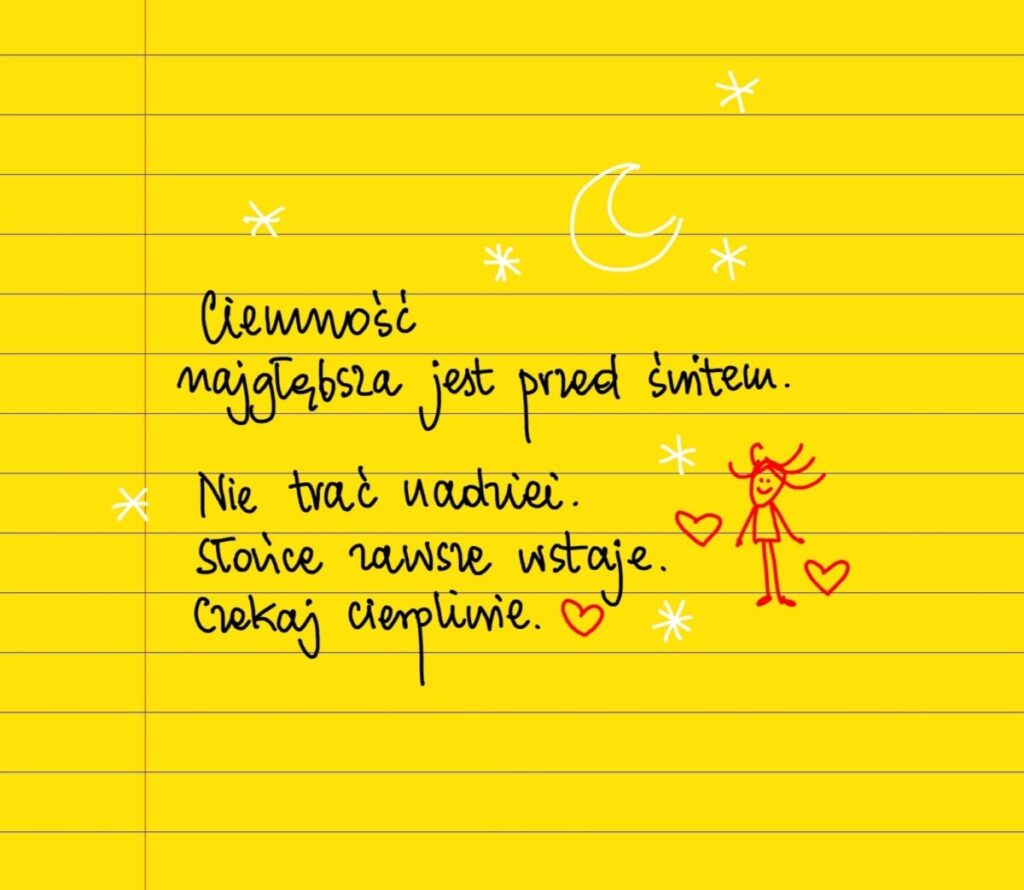 Ciemność
najgłębsza jest przed świtem.
Nie trać nadziei.
Słońce zawsze wstaje.
Czekaj cierpliwie.